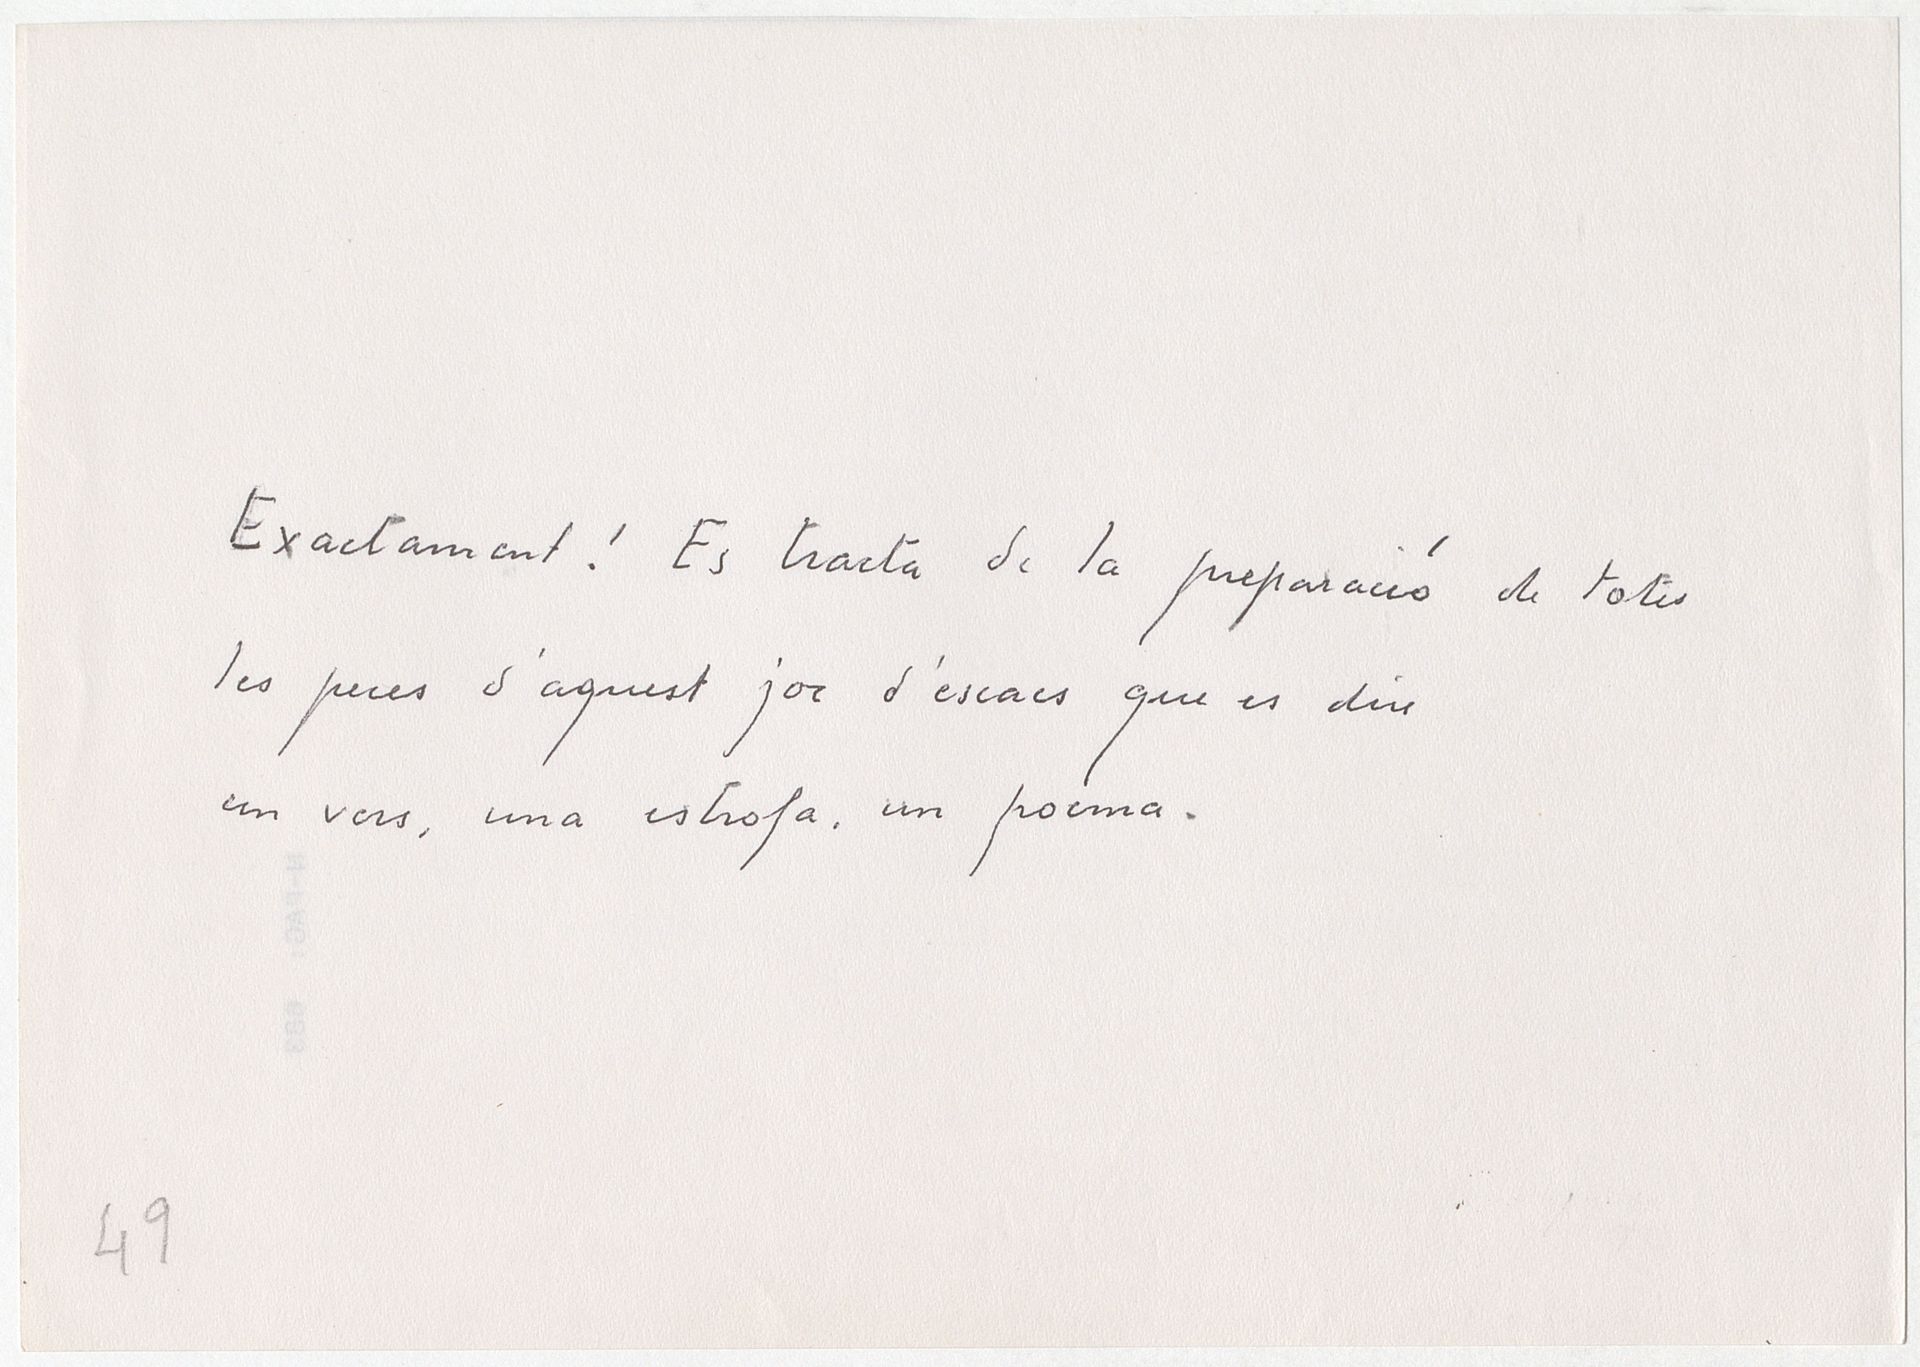 Exactament! Es tracta de la preparació de totes
les peces d'aquest joc d'escacs que es diu
un vers, una estrofa, un poema.
49